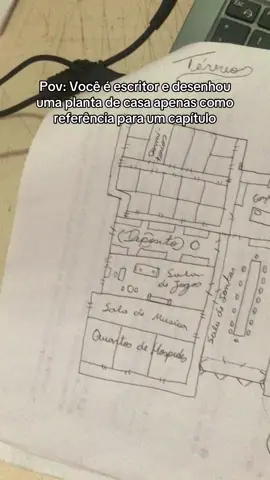 Térreo
Pov: Você é escritor e desenhou
uma planta de casa apenas como
referência para um capítulo
Depósito
Sala
de
Jogos
Sala de Jantar
Sala de Musica
Quartos de Hóspedes